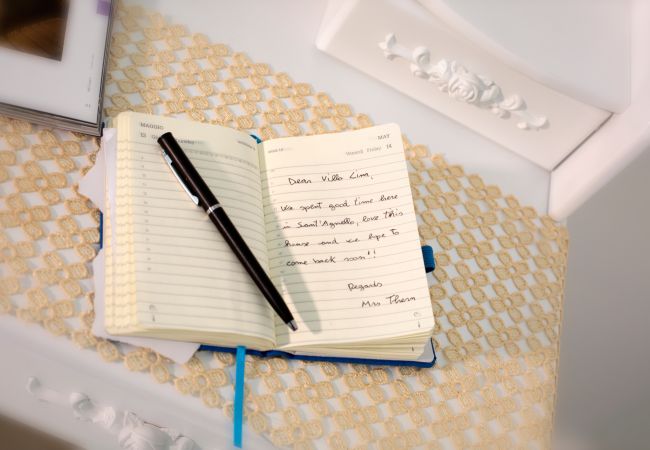 MAGGIO
13
MAY
Venerdì Friday 14
Dear Villa Lina,
We spent good time here
in Sant'Agnello, love this
house and we hope to
come back soon!!
Regards
Mrs Thern